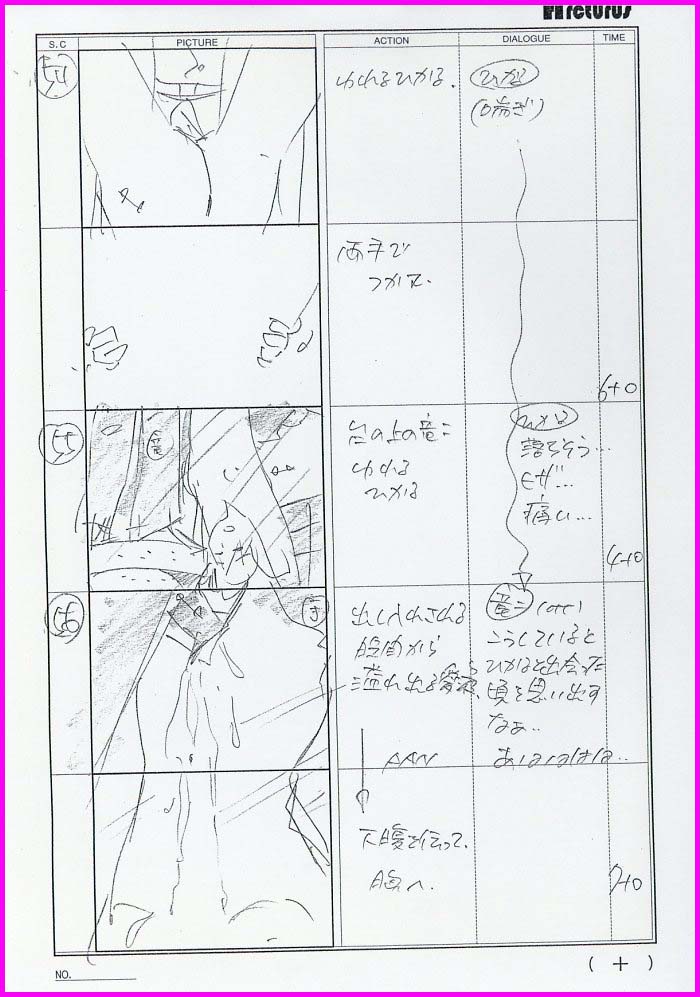 Arcturus
S.C
PICTURE
ACTION
DIALOGUE
TIME
54
ゆれるひかる.
ひかる
(喘ぎ)
両手で
つかまえ.
6+0
55
ゆれる
ひかる
ひかる
落ちそう…
ヒザ…
痛い…
4+0
56
出し入れされる
から
溢れ出る愛液
竜二(off)
こうしていると
ひかると出会った
頃を思い出す
なぁ..
あはははは..
PAN
下腹を伝って.
へ.
7+0
( + )
NO.